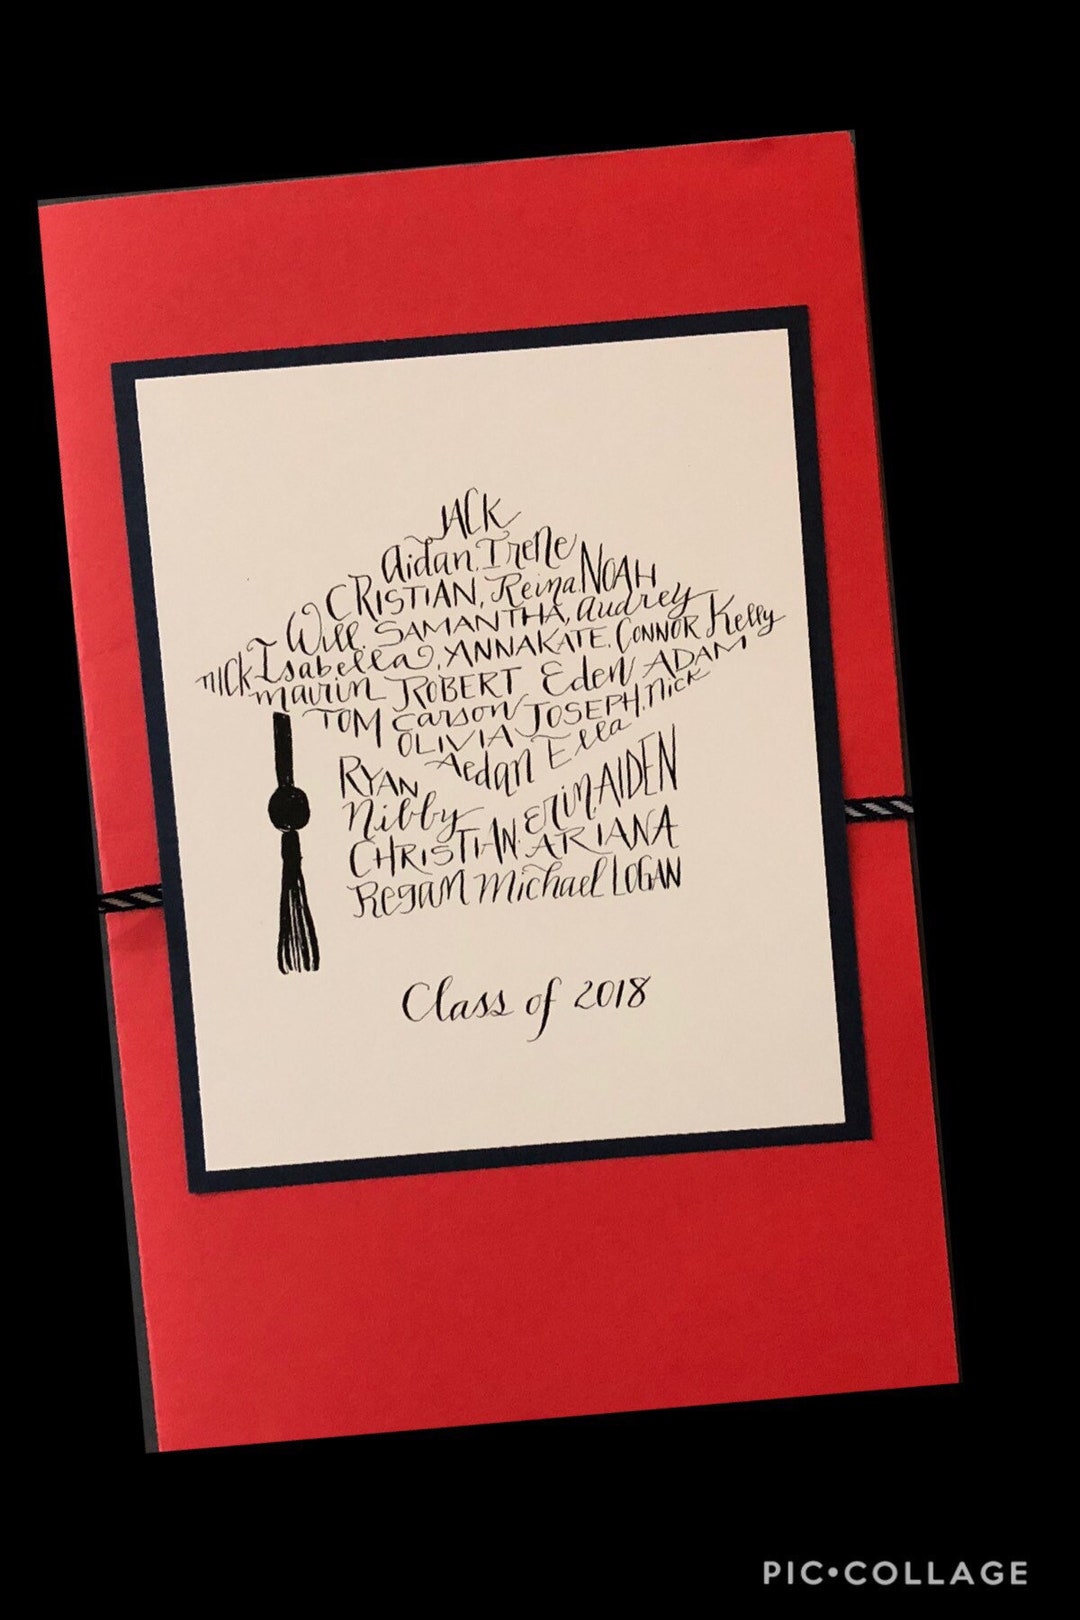 JACK
Aidan, Irene
CRISTIAN, Reina, NOAH
Will, SAMANTHA, Audrey
NICK Isabella, ANNAKATE, CONNOR Kelly
Mairin ROBERT Eden ADAM
TOM Carson JOSEPH, Nick
OLIVIA Aedan Ella
RYAN
Nibby ERIN, AIDEN
CHRISTIAN ARIANA
Regam Michael LOGAN
Class of 2018
PIC•COLLAGE